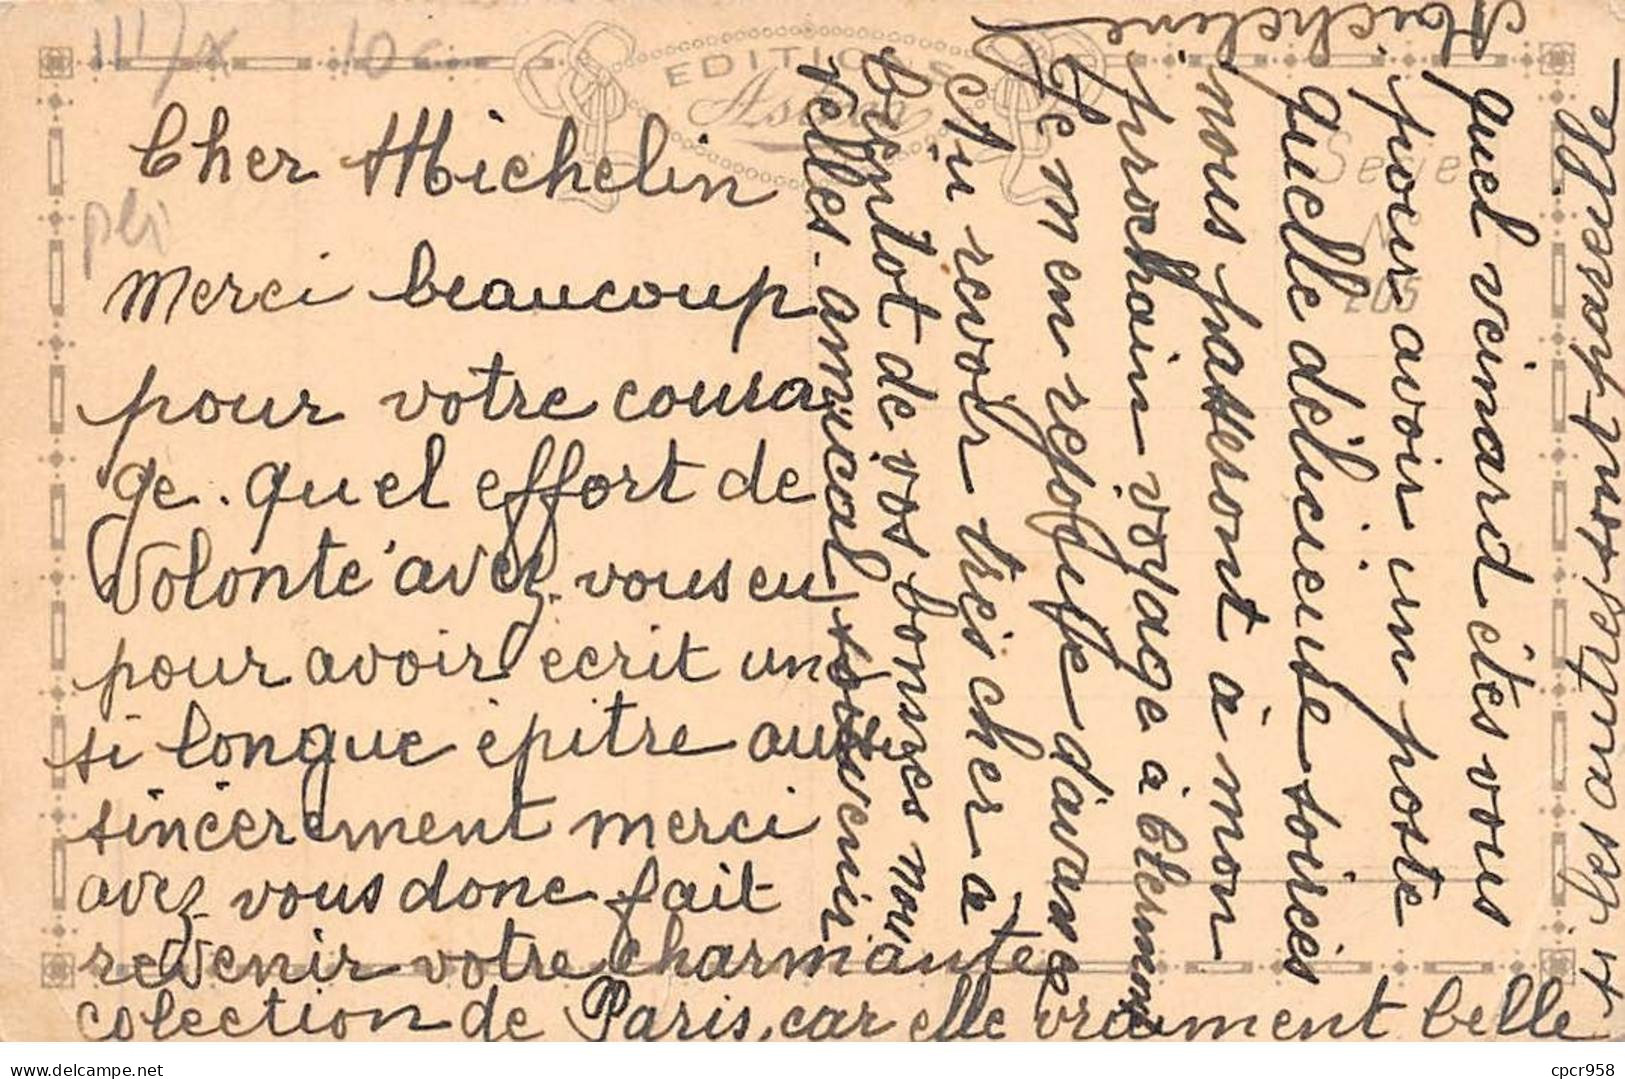 III/x 10c
EDITIONS
pli
Serie
N°
205
Cher Michelin
Merci beaucoup
pour votre coura
ge. quel effort de
Volonté avez vous eu
pour avoir ecrit un
si longue épitre aussi
sincèrement merci
avez vous donc fait
revenir votre charmante
colection de Paris, car elle vraiment belle
si les autres sont pareille
quel veinard êtes vous
pour avoir un poste
quelle délicieuse soirées
nous passeront à mon
prochain voyage à Clermont
Je m en rejouisse d'avance
Au revoir très cher à
bientot de vos bonnes nou
velles. amical souvenir
Micheline
Delcampe.net
cpcr958